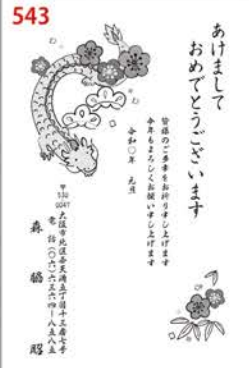 543
あけまして
おめでとうございます
皆様のご多幸をお祈り申し上げます
今年もよろしくお願い申し上げます
令和〇年 元旦
〒
530
0047
大阪市北区西天満五丁目十三番七号
電話(〇六)六三六四ー八五八五
森脇昭